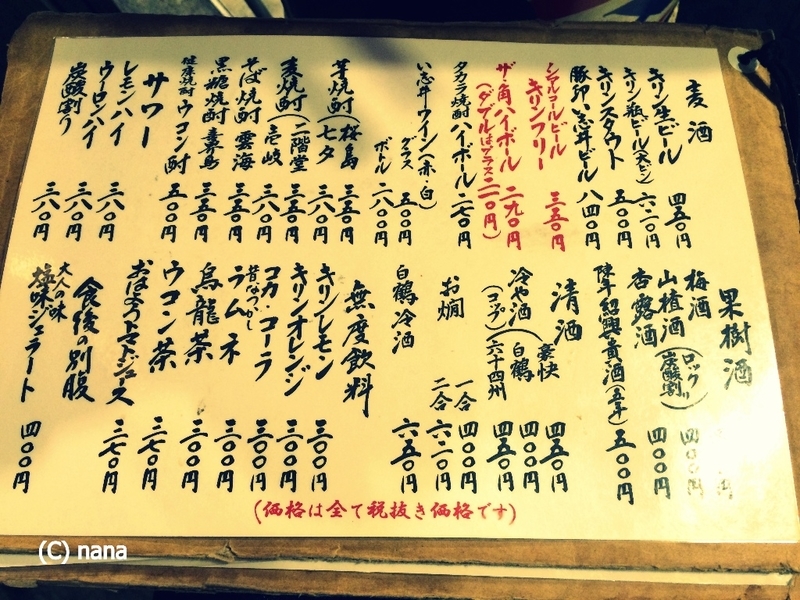 麦酒
キリン生ビール 四五〇円
キリン瓶ビール(大ビン) 六二〇円
キリンスタウト 五〇〇円
豚卵・志井ビール 八四〇円
ノンアルコールビール
キリンフリー 三五〇円
ザ・角ハイボール 二九〇円
(ダブルはプラス二一〇円)
タカラ焼酎ハイボール 二七〇円
いも井ワイン(赤・白)
グラス 五〇〇円
ボトル 二八〇〇円
芋焼酎(桜島 三五〇円
七夕 三八〇円
麦焼酎(二階堂 三五〇円
壱岐 三八〇円
そば焼酎 雲海 三五〇円
黒糖焼酎 喜界島 三五〇円
健康焼酎 ウコン酎 五〇〇円
サワー
レモンハイ 三八〇円
ウーロンハイ 三八〇円
炭酸割り 三八〇円
果樹酒
梅酒
山楂酒 (ロック 炭酸割) 四〇〇円
杏露酒 四〇〇円
陳年紹興貴酒(五年) 五〇〇円
清酒
冷や酒(コップ)
豪快 四五〇円
白鶴 四〇〇円
六十四州 四五〇円
お燗
一合 四〇〇円
二合 六二〇円
白鶴冷酒 六五〇円
無度飲料
キリンレモン 三〇〇円
キリンオレンジ 三〇〇円
コカ・コーラ 三〇〇円
昔なつかし
ラムネ 三〇〇円
烏龍茶 三〇〇円
ウコン茶 三七〇円
おはようトマトジュース 三七〇円
食後の別腹
大人の味
塩味ジェラート 四〇〇円
(価格は全て税抜き価格です)
(C) nana